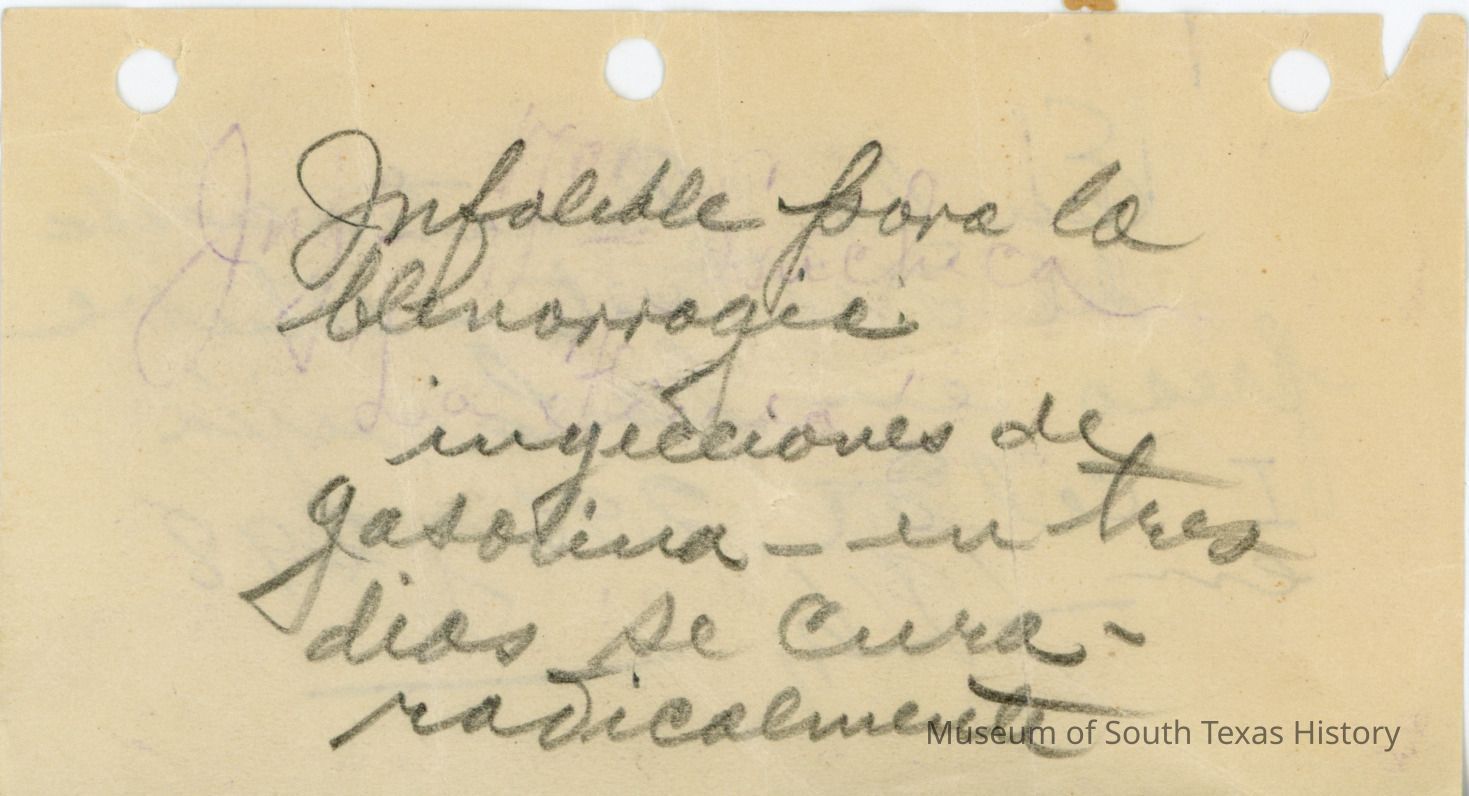 Infalible para la
blenorragia.
inyecciones de
gasolina - en tres
dias se cura -
radicalmente
Museum of South Texas History